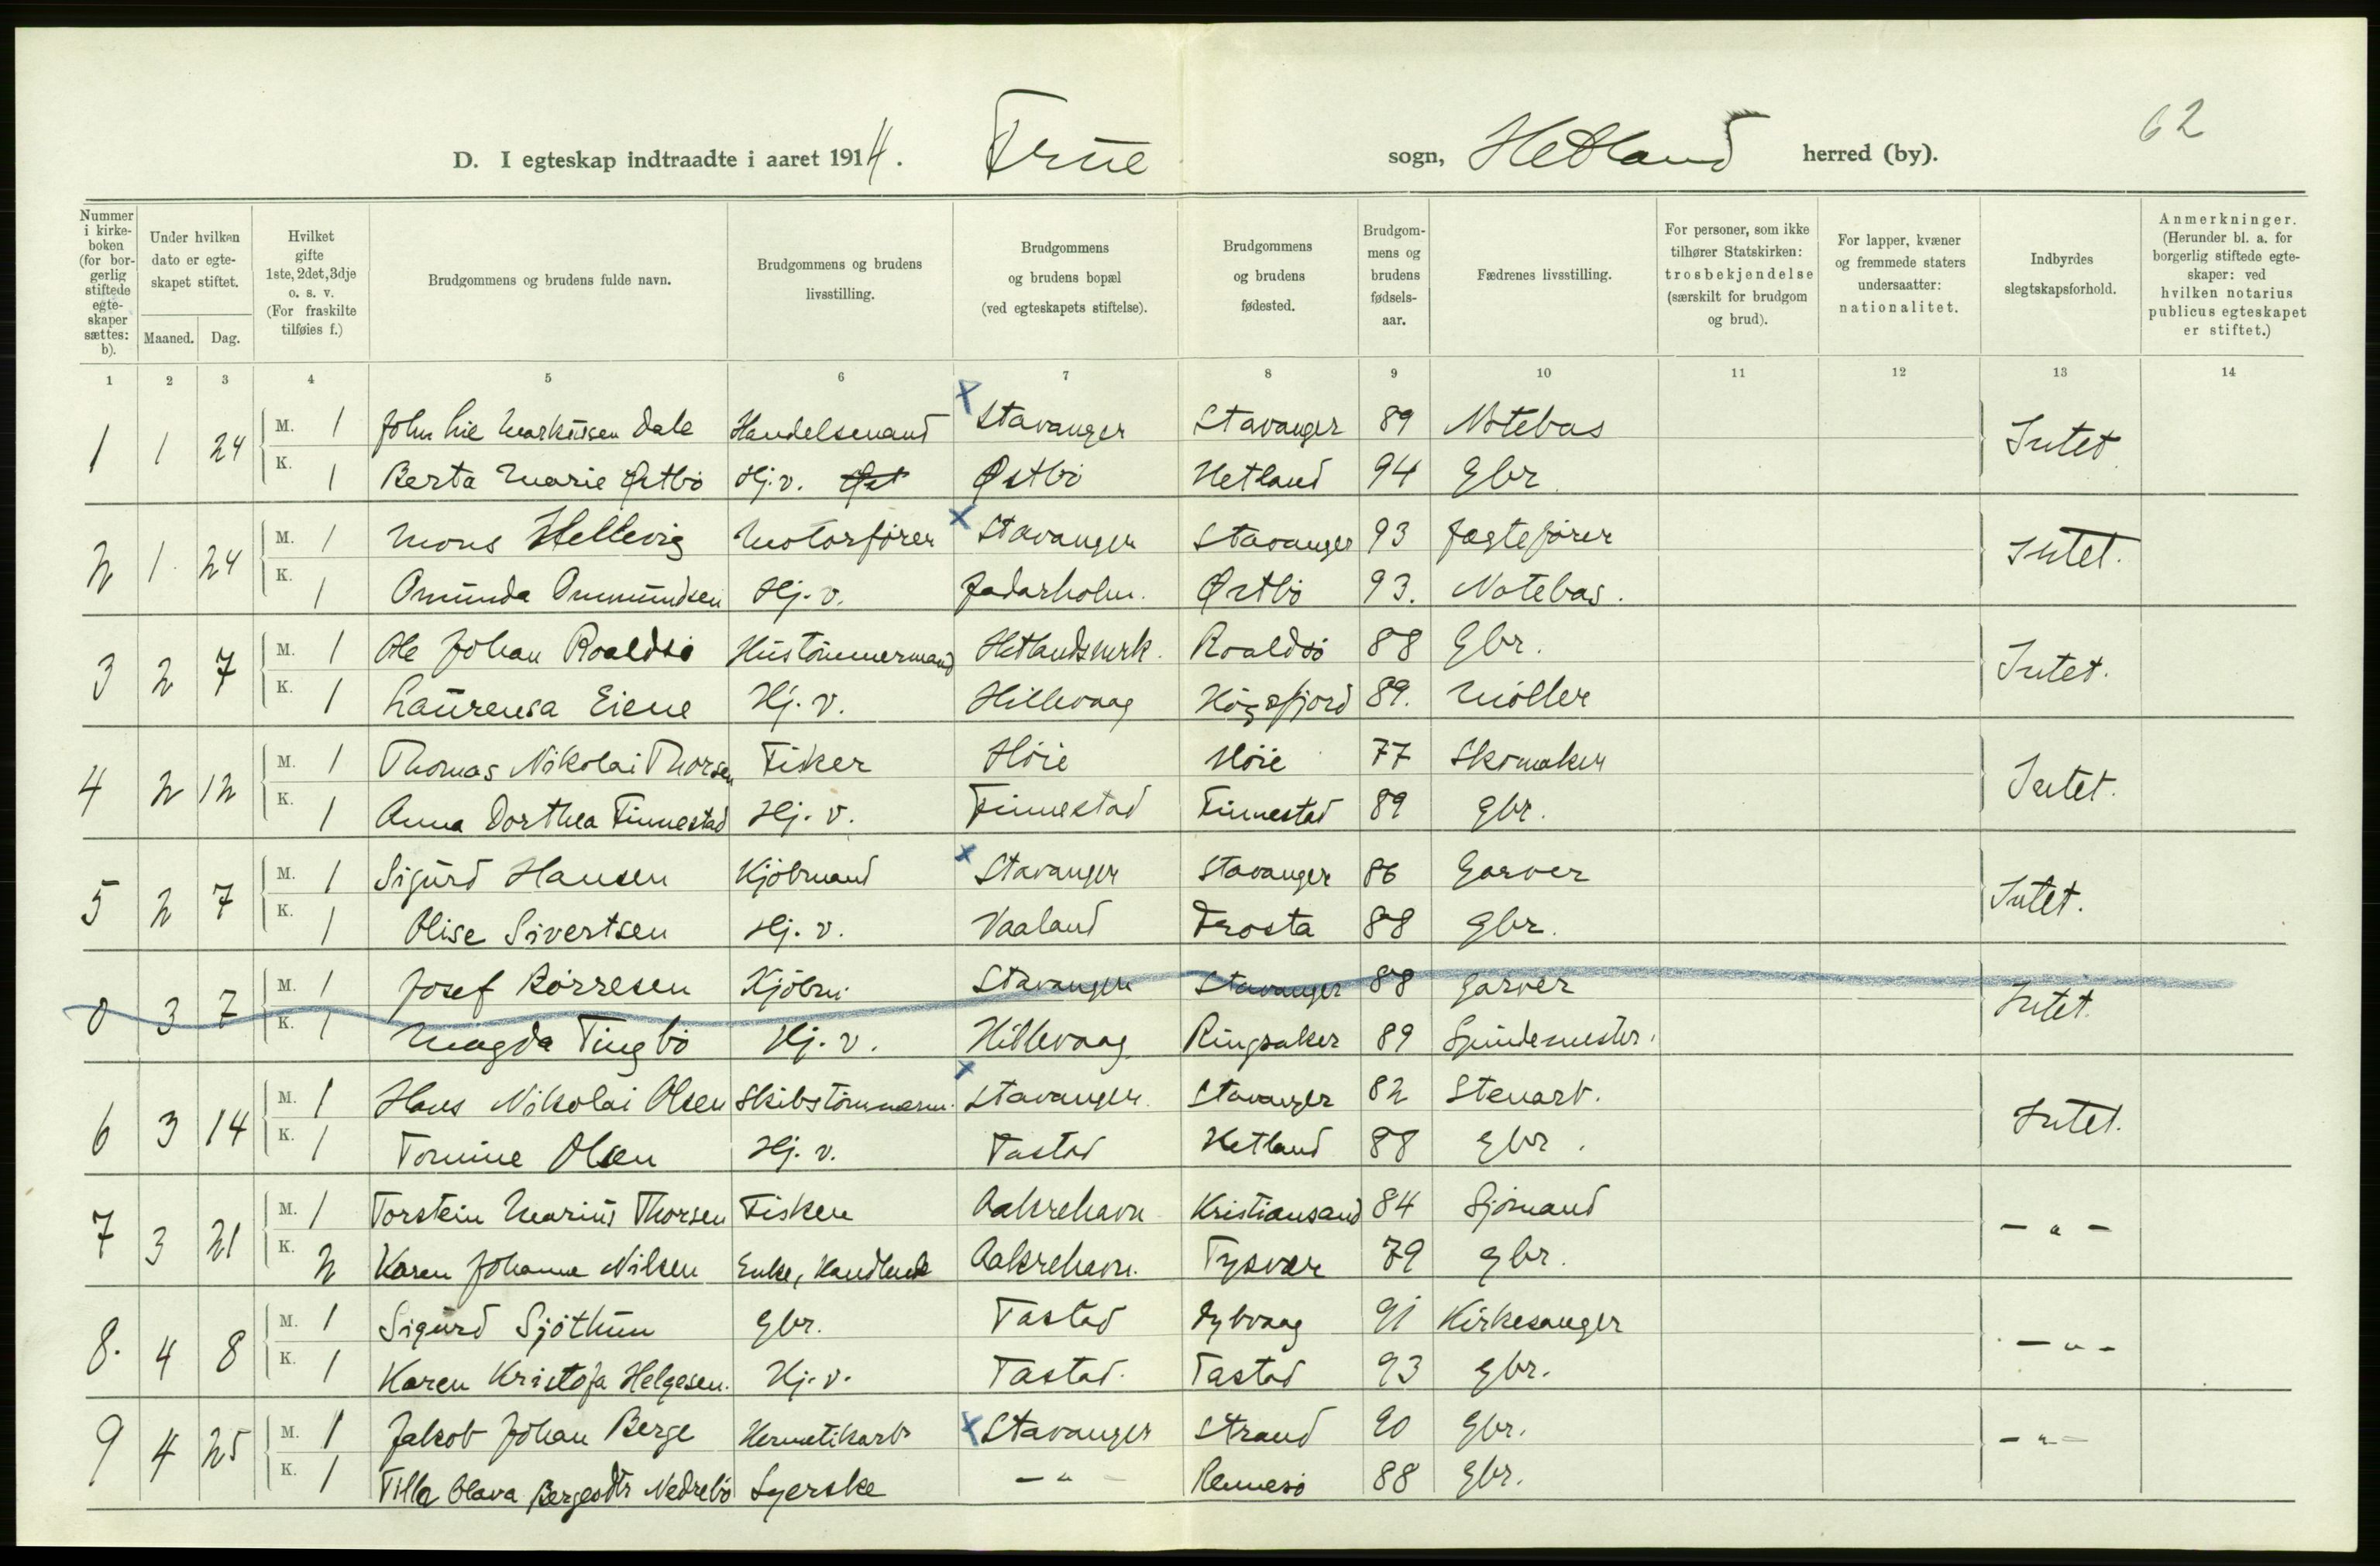 62
D. I egteskap indtraadte i aaret 1914. Frue sogn, Hetland herred (by).
Nummer i kirkeboken (for borgerlig stiftede egteskaper sættes: b).
Under hvilken dato er egteskapet stiftet.
Maaned. Dag.
Hvilket gifte 1ste, 2det, 3dje o. s. v. (For fraskilte tilføies f.)
Brudgommens og brudens fulde navn.
Brudgommens og brudens livsstilling.
Brudgommens og brudens bopæl (ved egteskapets stiftelse).
Brudgommens og brudens fødested.
Brudgommens og brudens fødselsaar.
Fædrenes livsstilling.
For personer, som ikke tilhører Statskirken: trosbekjendelse (særskilt for brudgom og brud).
For lapper, kvæner og fremmede staters undersaatter: nationalitet.
Indbyrdes slegtskapsforhold.
Anmerkninger. (Herunder bl. a. for borgerlig stiftede egteskaper: ved hvilken notarius publicus egteskapet er stiftet.)
1 2 3 4 5 6 7 8 9 10 11 12 13 14
1 1 24 M. 1 John Lie Markussen Dale Handelsmand x Stavanger Stavanger 89 Notebas Intet
K. 1 Berta Marie Østbö Hj. v. Øst Østbö Hetland 94 Gbr.
2 1 24 M. 1 Mons Hellevig Motorförer x Stavanger Stavanger 93 Jagteförer Intet.
K. 1 Amunda Ammundsen Hj. v. Jadarholm. Østbö 93. Notebas.
3 2 7 M. 1 Ole Johan Roaldsö Hustömmermand Hetlandsmrk. Roaldsö 88 Gbr. Intet.
K. 1 Laurensa Eiene Hj. v. Hillevaag Högsfjord 89. Möller
4 2 12 M. 1 Thomas Nikolai Thorsen Fisker Höie Höie 77 Skomaker Intet.
K. 1 Anna Dorthea Finnestad Hj. v. Finnestad Finnestad 89 Gbr.
5 2 7 M. 1 Sigurd Hansen Kjöbmand x Stavanger Stavanger 86 Garver Intet.
K. 1 Olise Sivertsen Hj. v. Vaaland Frosta 88 Gbr.
0 3 7 M. 1 Josef Börresen Kjöbm. Stavanger Stavanger 88 Garver Intet.
K. 1 Magda Tingbö Hj. v. Hillevaag Ringsaker 89 Spindemester.
6 3 14 M. 1 Hans Nikolai Olsen Skibstömmerm. x Stavanger Stavanger 82 Stenarb. Intet.
K. 1 Tomine Olsen Hj. v. Tastad Hetland 88 Gbr.
7 3 21 M. 1 Torstein Marius Thorsen Fisker Aakrehavn Kristiansand 84 Sjömand - " -
K. 2 Karen Johanne Nilsen Enke, Aakrehavn. Tysvær 79 Gbr.
8. 4 8 M. 1 Sigurd Sjöthun Gbr. Tastad Dybvaag 91 Kirkesanger - " -
K. 1 Karen Kristofa Helgesen. Hj. v. Tastad. Tastad 93 Gbr.
9 4 25 M. 1 Jakob Johan Berge Hermetikarb x Stavanger Strand 90 Gbr. - " -
K. 1 Tilla Olava Bergesdtr Nedrebö Syerske - " - Rennesö 88 Gbr.